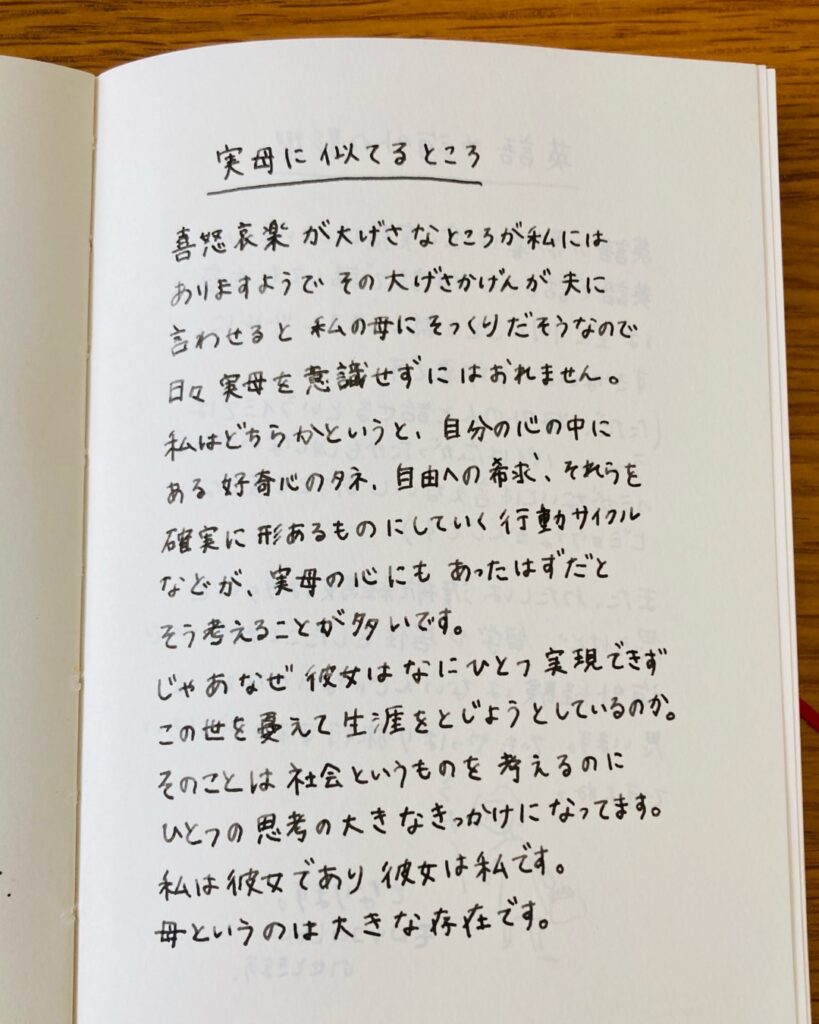 実母に似てるところ
喜怒哀楽が大げさなところが私には
ありますようでその大げさかげんが夫に
言わせると 私の母にそっくりだそうなので
日々実母を意識せずにはおれません。
私はどちらかというと、自分の心の中に
ある好奇心のタネ、自由への希求、それらを
確実に形あるものにしていく行動サイクル
などが、実母の心にもあったはずだと
そう考えることが多いです。
じゃあなぜ彼女はなにひとつ実現できず
この世を憂えて生涯をとじようとしているのか。
そのことは社会というものを考えるのに
ひとつの思考の大きなきっかけになってます。
私は彼女であり彼女は私です。
母というのは大きな存在です。